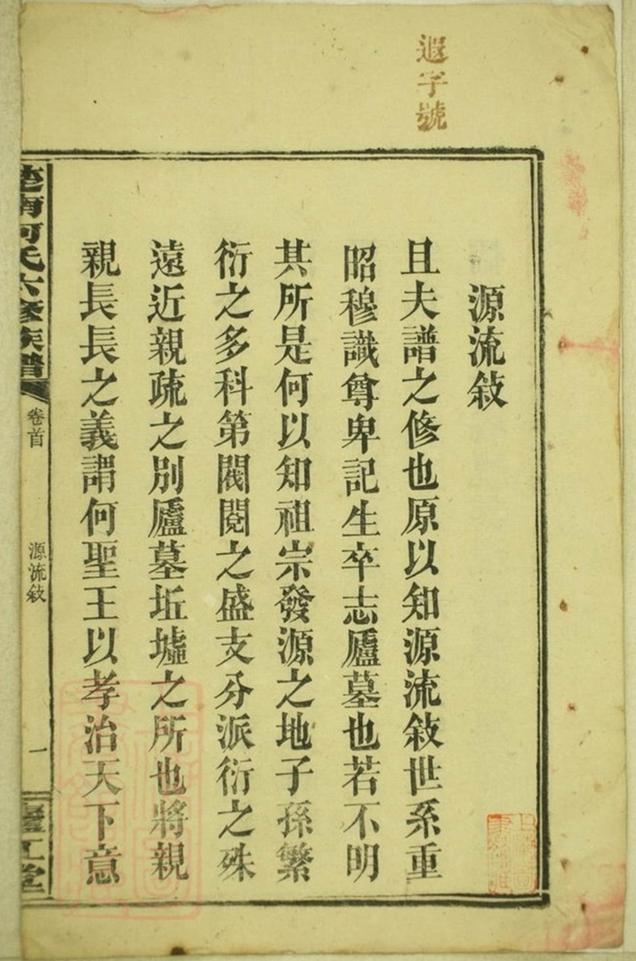 遐字號
源流敍
且夫譜之修也原以知源流敍世系重
昭穆識尊卑記生卒志廬墓也若不明
其所是何以知祖宗發源之地子孫繁
衍之多科第閥閱之盛支分派衍之殊
遠近親疏之別廬墓坵墟之所也將親
親長長之義謂何聖王以孝治天下意
楚南何氏六修族譜
卷首
源流敍
一
廬江堂